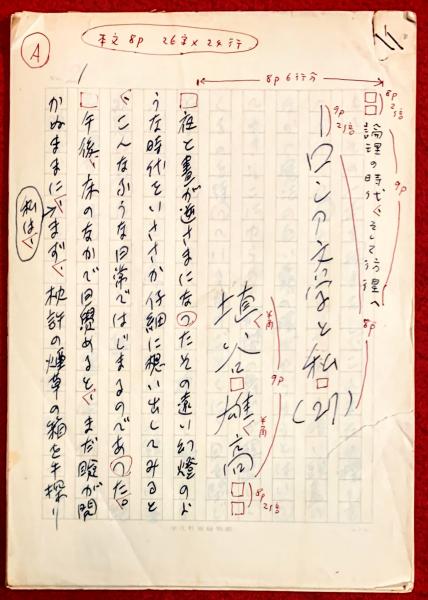 A
本文 8p 26字×24行
8p 6行分
1
論理の時代、そして彷徨へ
8p
2倍
9p
――ロシア文学と私(27)
9p
2倍
8p
埴谷雄高
半角
9p
半角
8p
2倍
夜と晝が逆さまになつたその遠い幻燈のよ
うな時代をいささか仔細に想い出してみると
、こんなふうな日常ではじまるのであつた。
午後、床のなかで目覺めると、まだ瞼が開
かぬままに、まず、枕許の煙草の箱を手探り
私は、